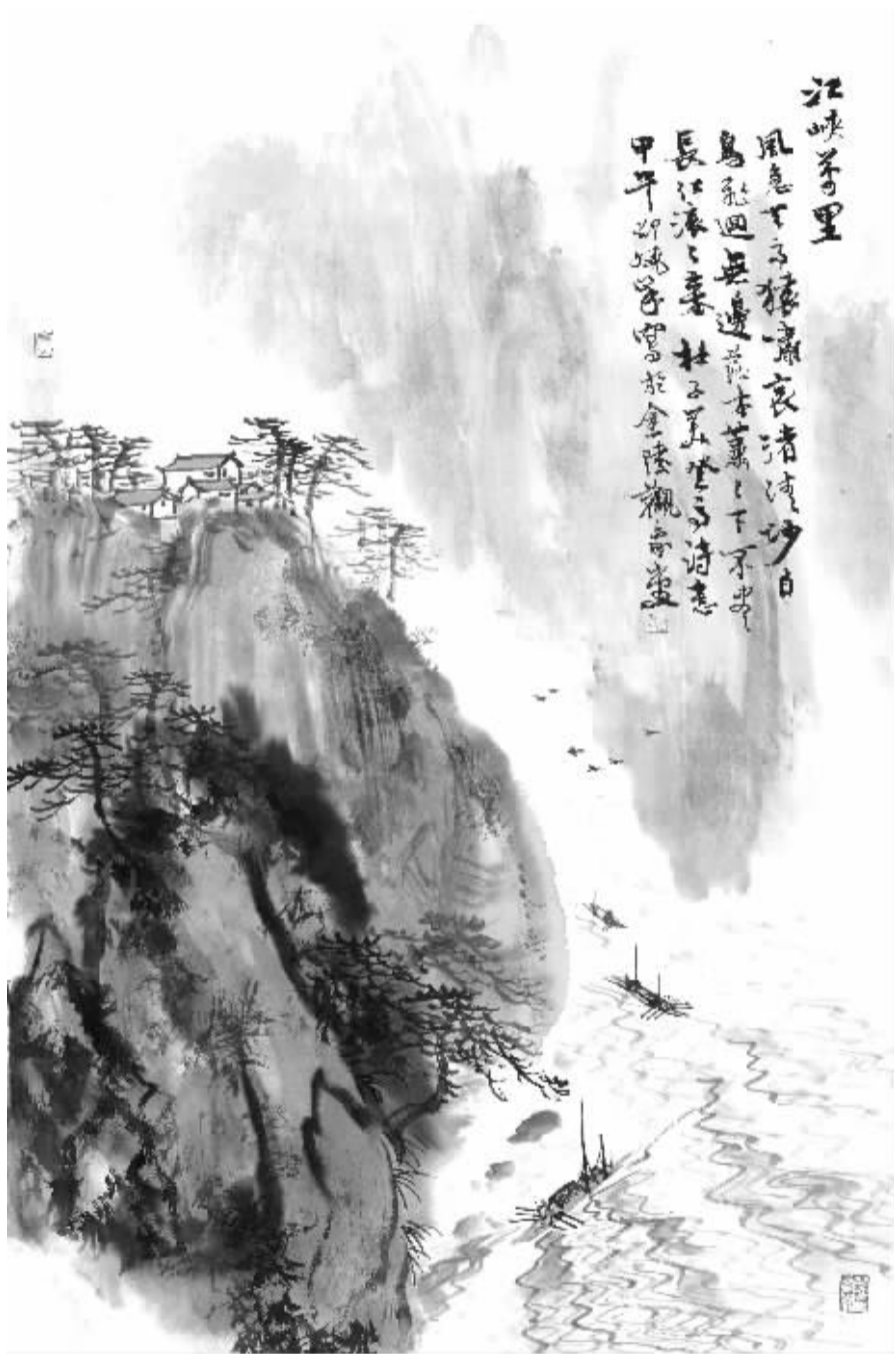 江峽萬里
風急天高猿嘯哀渚清沙白
鳥飛迴無邊落木蕭々下不盡
長江滾々來 杜子美登高詩意
甲午 寫於金陵觀